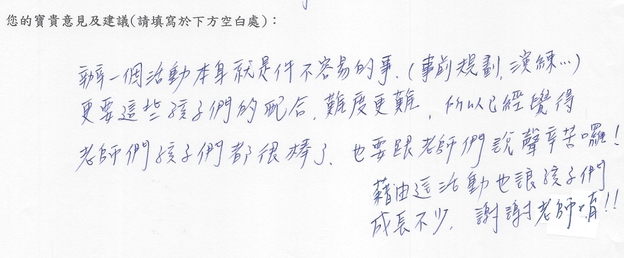 您的寶貴意見及建議(請填寫於下方空白處)：
辦一個活動本身就是件不容易的事.(事前規劃,演練…)
更要這些孩子們的配合,難度更難,所以已經覺得
老師們孩子們都很棒了、也要跟老師們說聲辛苦囉!
藉由這活動也讓孩子們
成長不少,謝謝老師唷!!